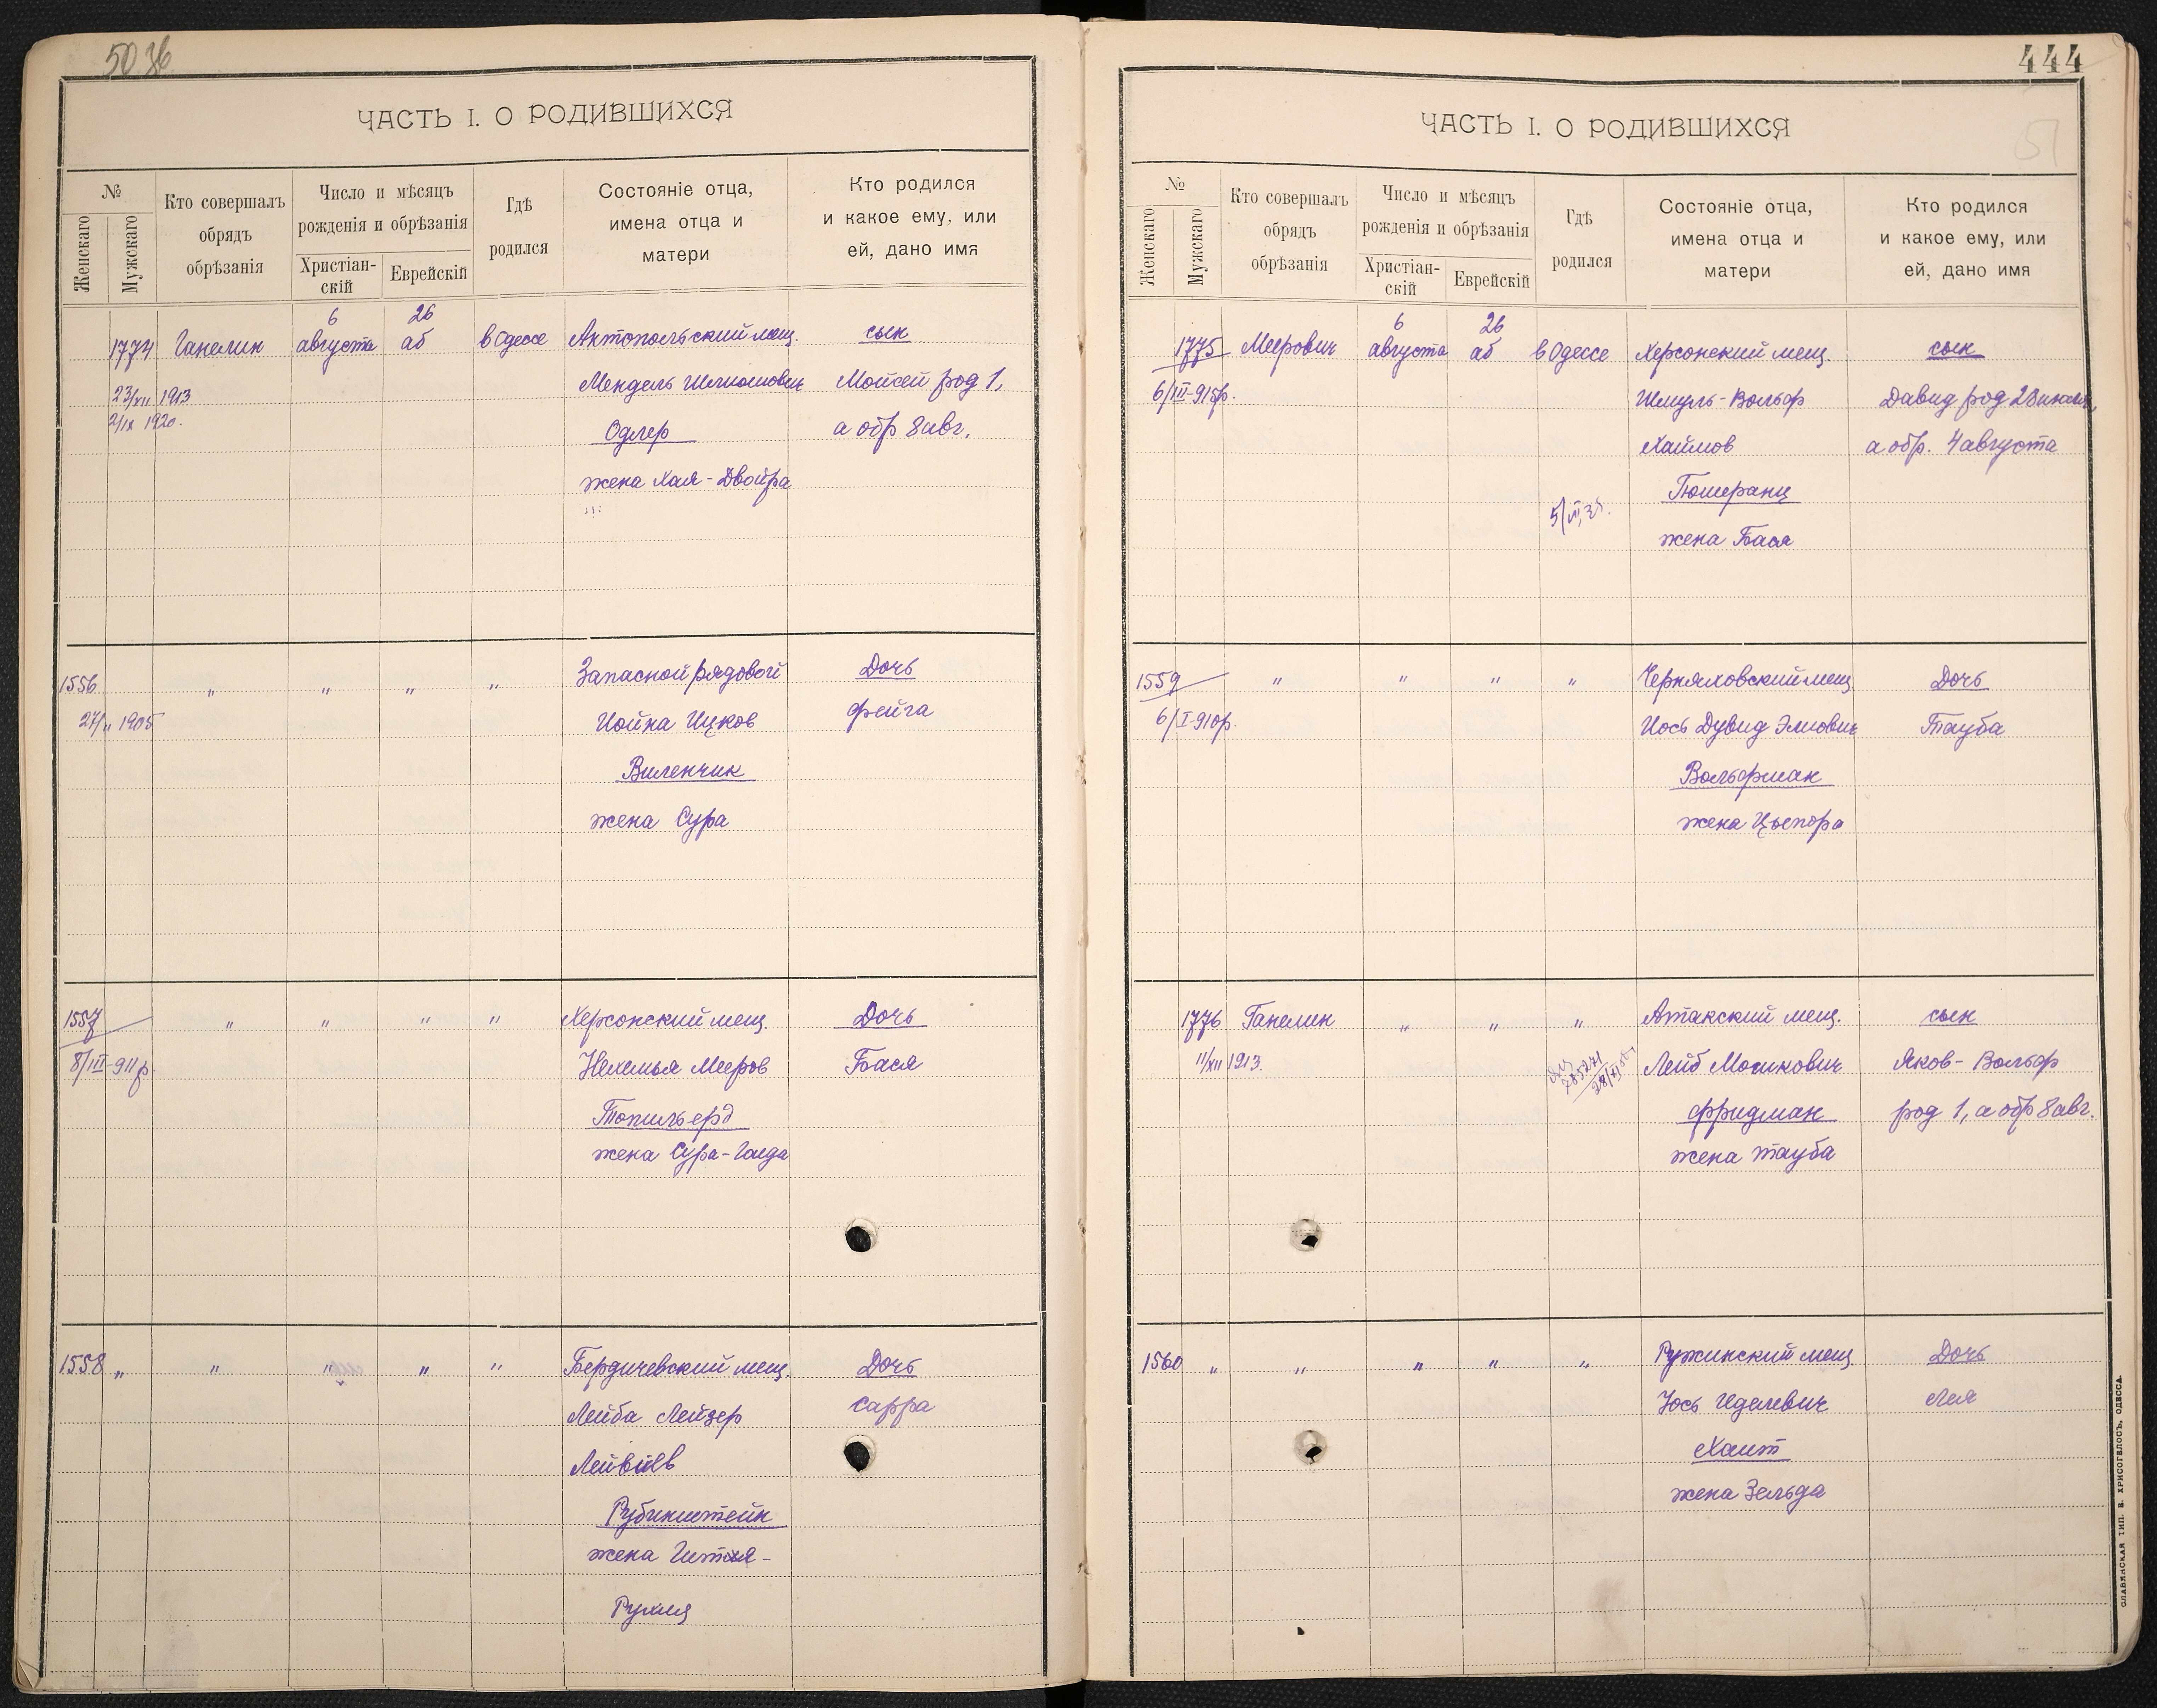 50 об
ЧАСТЬ I. О РОДИВШИХСЯ
№
Женскаго
Мужскаго
Кто совершалъ
обрядъ
обрѣзанія
Число и мѣсяцъ
рожденія и обрѣзанія
Христіан-
скій
Еврейскій
Гдѣ
родился
Состояніе отца,
имена отца и
матери
Кто родился
и какое ему, или
ей, дано имя
6 26
1774 Ганелин августа аб в Одессе Антопольский мещ. сын
23/XII 1913 Мендель Шлиомович Мойсей род 1,
2/IX 1920. Одлер а обр 8 авг.
жена Хая-Двойра
1556 " " " " Запасной рядовой Дочь
27/II 1905 Иойна Ицков Фейга
Виленчик
жена Сура
1557 " " " " Херсонский мещ. Дочь
8/III-911 р. Нехемья Мееров Бася
Топильерд
жена Сура-Голда
1558 " " " " " Бердичевский мещ. Дочь
Лейба Лейзер Сарра
Лейвиев
Рубинштейн
жена Гитля-
Рухля
444
51
ЧАСТЬ I. О РОДИВШИХСЯ
№
Женскаго
Мужскаго
Кто совершалъ
обрядъ
обрѣзанія
Число и мѣсяцъ
рожденія и обрѣзанія
Христіан-
скій
Еврейскій
Гдѣ
родился
Состояніе отца,
имена отца и
матери
Кто родился
и какое ему, или
ей, дано имя
6 26
1775 Меерович августа аб в Одессе Херсонский мещ. сын
6/III-915р. Шмуль-Вольф Давид род 28 июля,
Хаимов а обр. 4 августа
Гюмеранц
жена Бася
1559 " " " " Черняховский мещ Дочь
6/I-910р. Иось Дувид Элиович Тауба
Вольфман
жена Цыпора
1776 Ганелин " " " Атакский мещ. сын
11/XII 1913. Лейб Мошкович Яков-Вольф
Фридман род 1, а обр 8 авг.
жена Тауба
1560 " " " " " Ружинский мещ Дочь
Иось Иделевич Лея
Хаит
жена Зельда
СЛАВЯНСКАЯ ТИП. Н. ХРИСОГЕЛОСЪ, ОДЕССА.